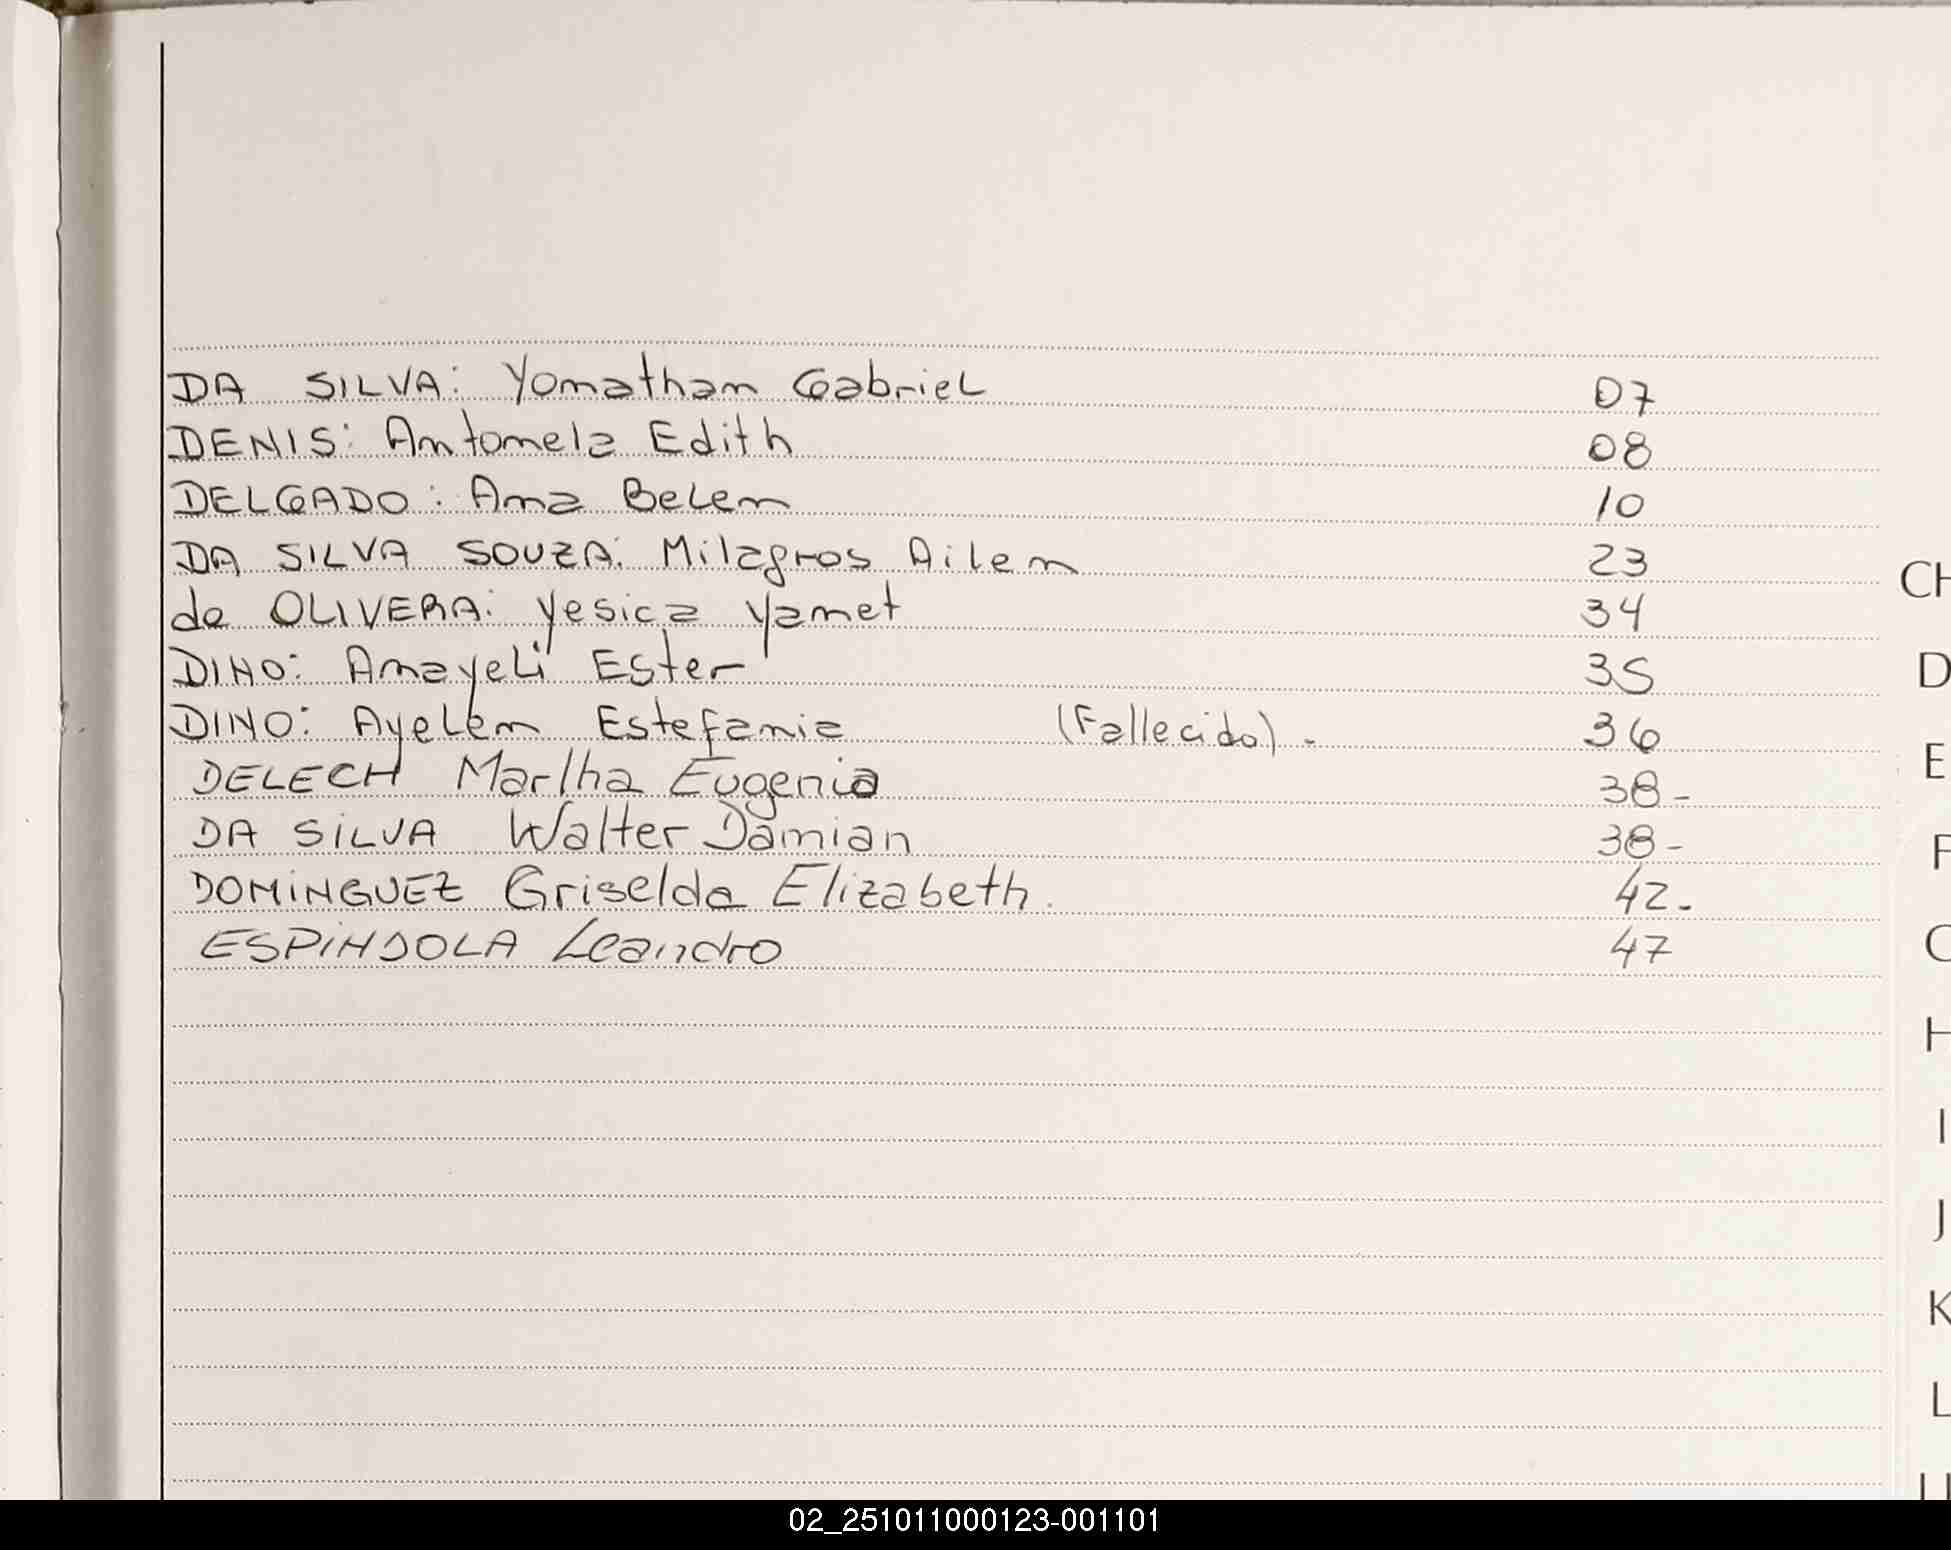 DA SILVA: Yonathan Gabriel 07
DENIS: Antonela Edith 08
DELGADO: Ana Belen 10
DA SILVA SOUZA: Milagros Ailen 23
CH
de OLIVERA: Yesica Yanet 34
DINO: Anayeli Ester 35
D
DINO: Ayelen Estefania (Fallecido). 36
E
DELECH Martha Eugenia 38-
DA SILVA Walter Damian 38-
F
DOMINGUEZ Griselda Elizabeth. 42.
ESPINDOLA Leandro 47
H
I
J
K
L
02_251011000123-001101